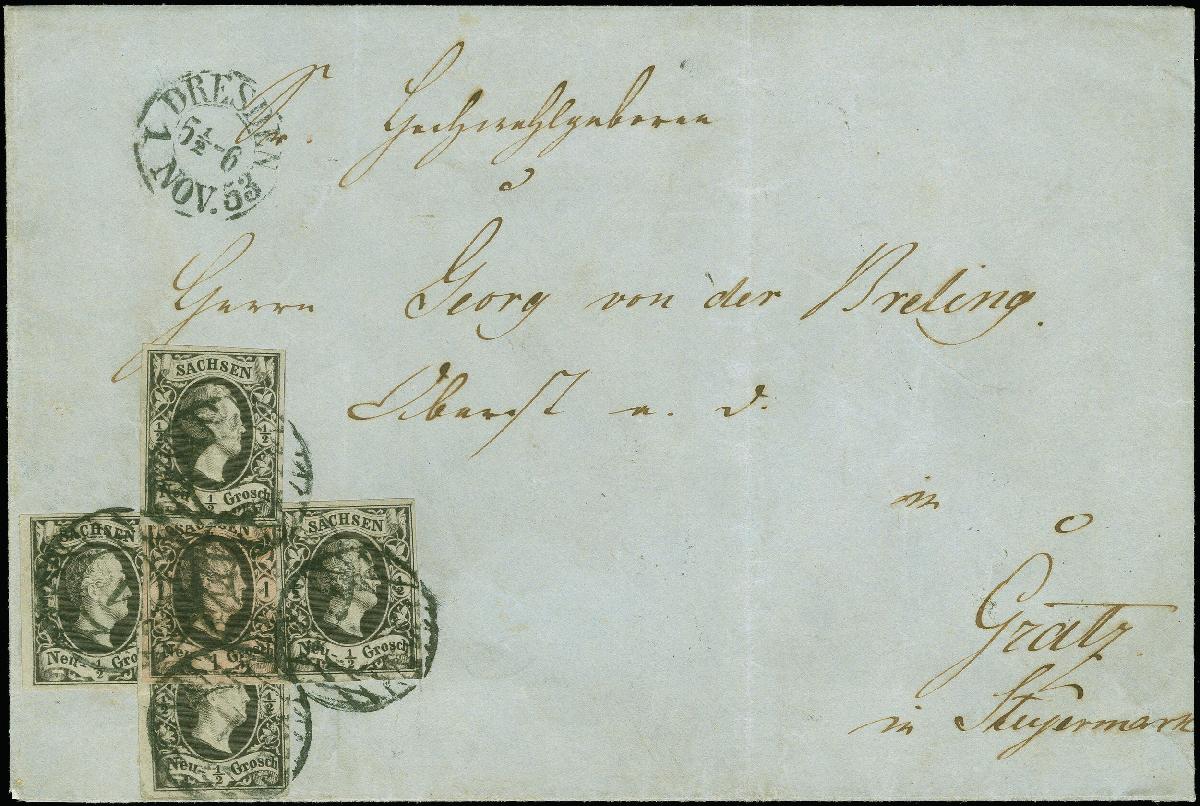 DRESDEN
5½-6
1 NOV. 53
Sr. Hochwohlgeboren
Herrn Georg von der Breling.
Oberst a. D.
in
Grätz
in Steyermark
SACHSEN
½ ½
Neu- ½ Grosch
SACHSEN
Neu- ½ Gro
SACHSEN
1 1
Neu 1 Grosch
SACHSEN
½
Neu- ½ Grosch
½
Neu- ½ Grosch